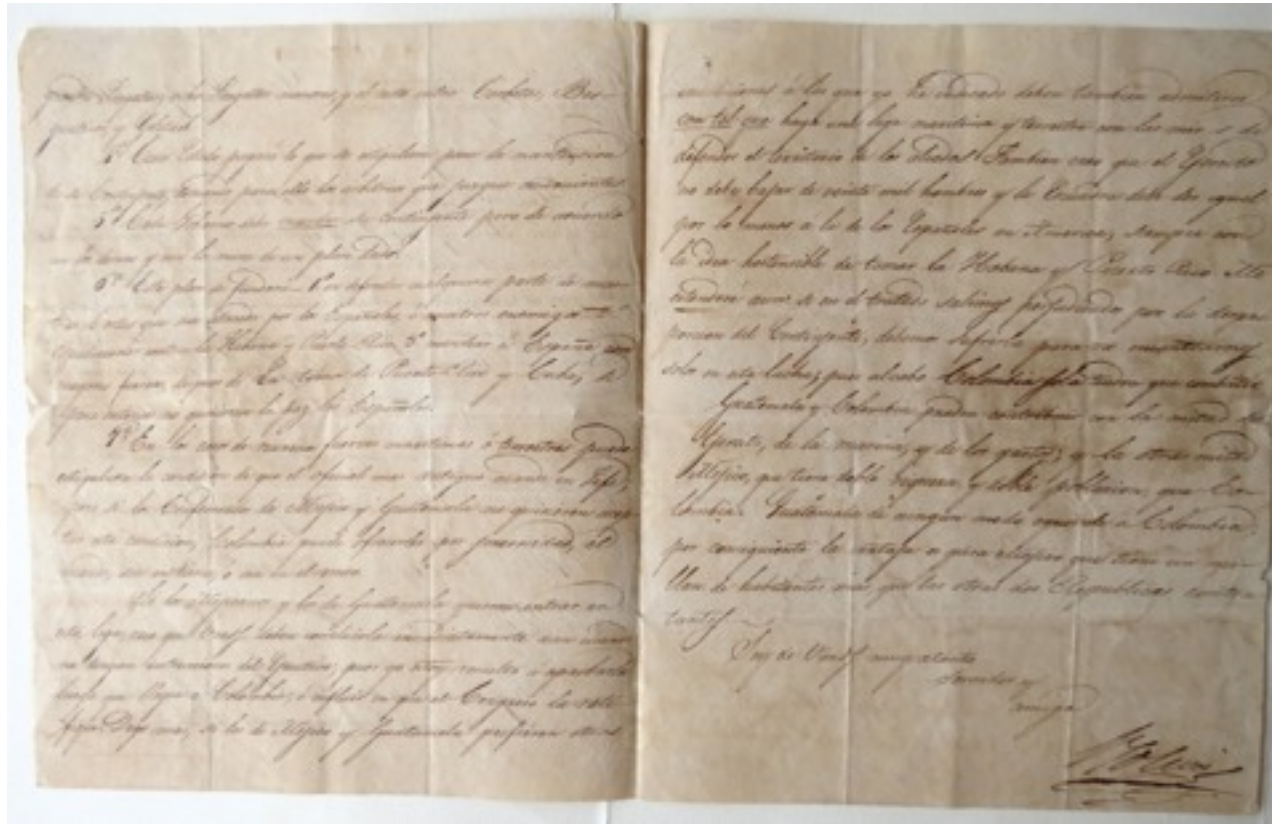 fragatas, ocho fragatas menores, y el resto entre Corbetas, Ber-
gantines y Goletas
4º Cada Estado pagará lo que se estipulare para la manutencion
de su contingente, tomando para ello los arbitrios que juzgue convenientes
5º Cada Gobierno debe mandar su contingente para de acuerdo
y con la mira de un plan dado
6º Este plan se fundará 1º en defender cualquiera parte de nues-
tras costas que sea atacada por los Españoles ó nuestros enemigos
expedicionar contra la Habana y Puerto Rico 3º marchar á España con
mayores fuerzas, despues de la toma de Puerto Rico y Cuba, si
para entonces no quisieren la paz los Españoles.
7º En el caso de reunirse fuerzas maritimas ó terrestres puede
estipularse la condicion de que el oficial mas antiguo mande en Gefe,
pero si la Confederacion de Mejico y Guatemala no quisieren
esta condicion, Colombia puede ofrecerles por generosidad, el
mando
Si los Mejicanos y los de Guatemala quieren entrar en
esta liga, creo que Vmds. deben concluirla inmediatamente aun cuando
no tengan instrucciones del Ejecutivo, pues yo estoy resuelto á aprobarla
luego que llegue á Colombia, é influiré en que el Congreso la rati-
fique Digo mas, si los de Mejico y Guatemala prefieren otras
condiciones á las que yo he indicado deben tambien admitirse
con tal que haya una liga maritima y terrestre con las miras de
defender el territorio de los aliados. Tambien creo que el Ejercito
no debe bajar de veinte mil hombres y la Escuadra debe ser igual
por lo menos á la de los Españoles en America, siempre con
la idea hostensible de tomar la Habana y Puerto Rico. Me
estenderé aun si en el tratado salimos perjudicados por la despro-
porcion del Contingente, debemos sufrirlo para no constituirnos
solos en esta lucha; pues al cabo Colombia sola tendra que combatir
Guatemala y Colombia pueden contribuir con la mitad del
Ejercito, de la marina, y de los gastos; y la otra mitad
Mejico, que tiene doble riqueza y doble poblacion que Co-
lombia. Guatemala de ningun modo excede á Colombia,
por consiguiente la ventaja es para Mejico que tiene un mi-
llon de habitantes mas que las otras dos Republicas contra-
tantes
Soy de Vmds. muy atento
Servidor y
amigo
Bolivar